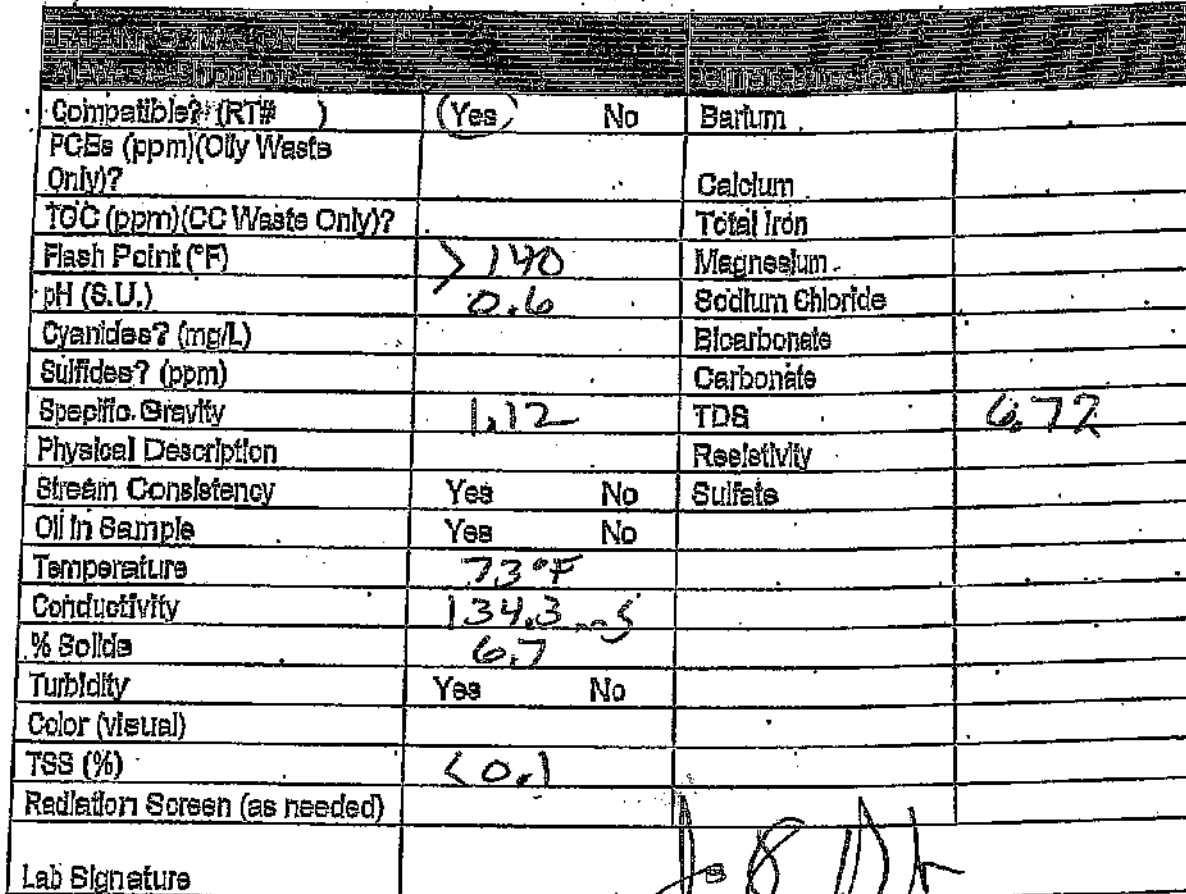 LAB INFORMATION
All Waste Shipments
Compatible? (RT# ) Yes No Barium
PCBs (ppm)(Oily Waste
Only)? Calcium
TOC (ppm)(CC Waste Only)? Total Iron
Flash Point (°F) > 140 Magnesium
pH (S.U.) 0.6 Sodium Chloride
Cyanides? (mg/L) Bicarbonate
Sulfides? (ppm) Carbonate
Specific Gravity 1.12 TDS
Physical Description Resistivity
Stream Consistency Yes No Sulfate
Oil in Sample Yes No
Temperature 73°F
Conductivity 134.3 mS
% Solids 6.7
Turbidity Yes No
Color (visual)
TSS (%) < 0.1
Radiation Screen (as needed)
Lab Signature